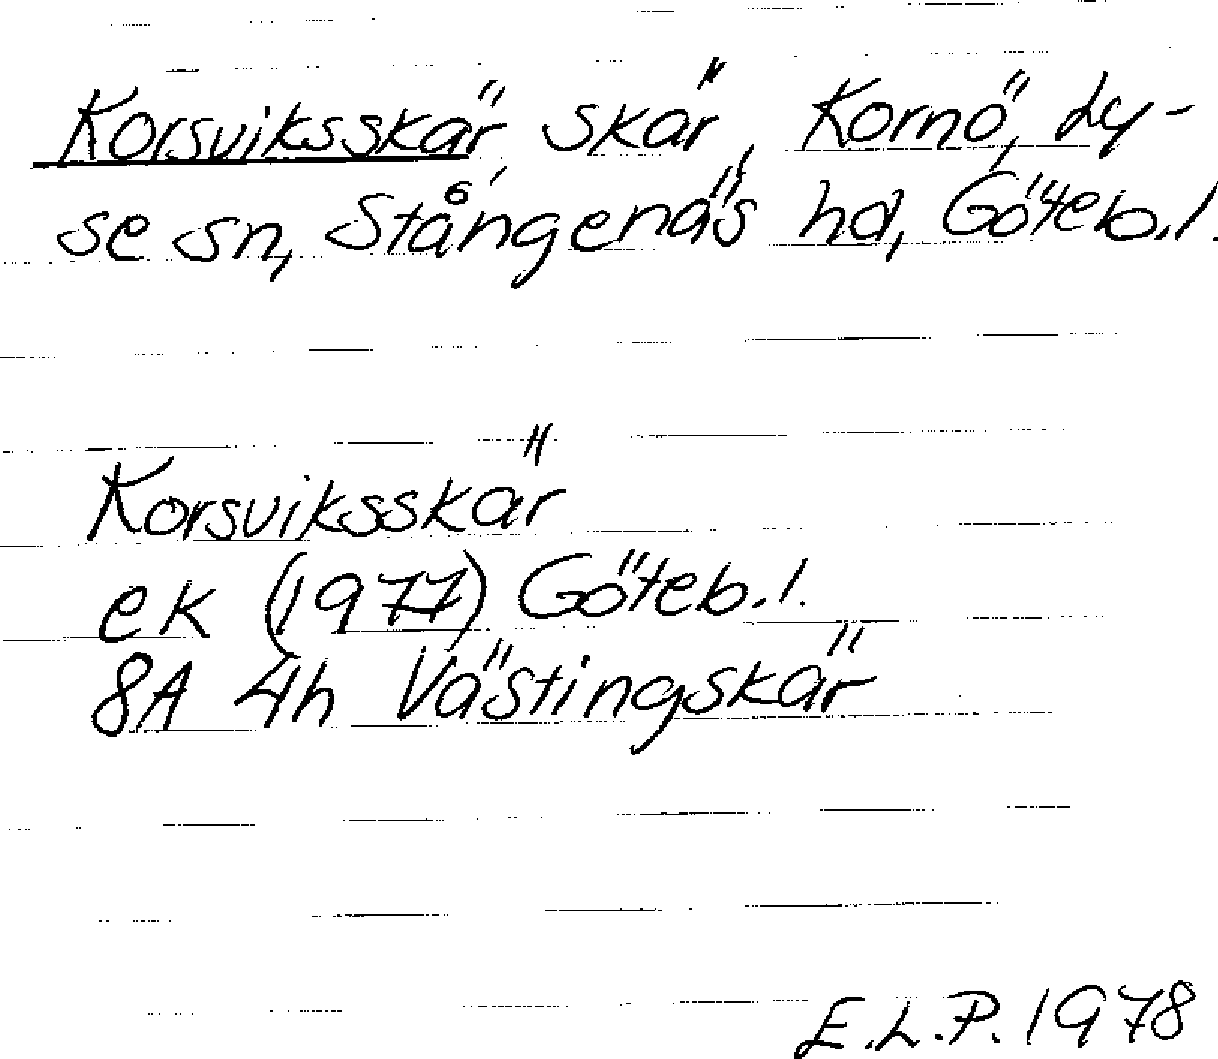 Korsviksskär, skär, Kornö, Ly-
se sn, Stångenäs hd, Göteb.l.
Korsviksskär
ek (1977) Göteb.l.
8A 4h Västingskär
E.L.P. 1978